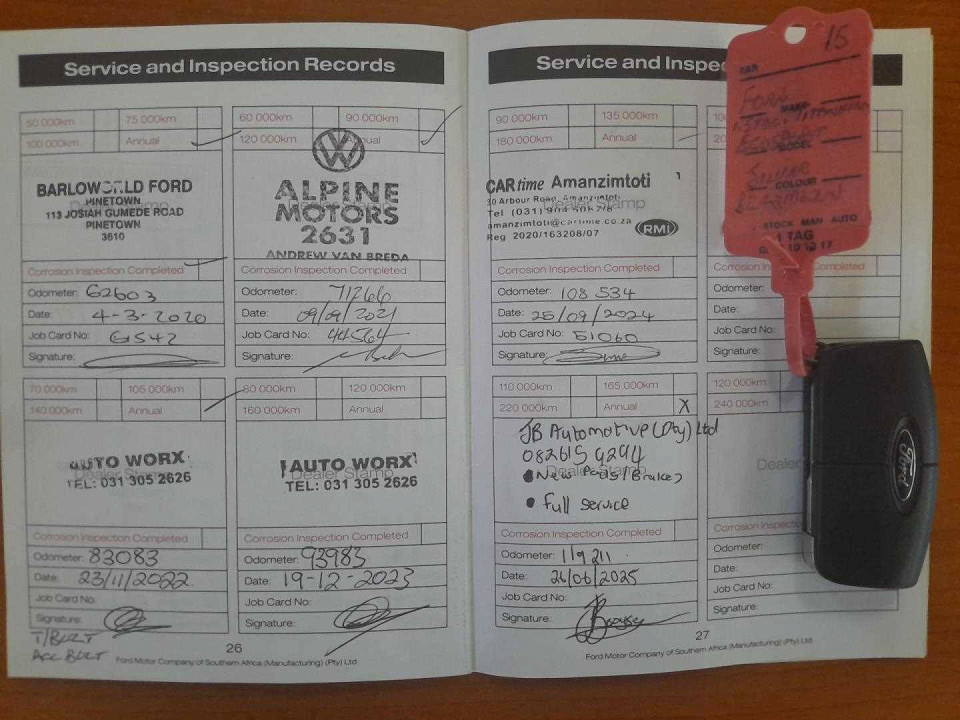 Service and Inspection Records
50 000km 75 000km
100 000km Annual
BARLOWORLD FORD
PINETOWN
113 JOSIAH GUMEDE ROAD
PINETOWN
3610
Corrosion Inspection Completed
Odometer: 62603
Date: 4-3-2020
Job Card No: G1542
Signature:
60 000km 90 000km
120 000km
ALPINE
MOTORS
2631
ANDREW VAN BREDA
Corrosion Inspection Completed
Odometer: 71266
Date: 09/09/2021
Job Card No: 44564
Signature:
70 000km 105 000km
140 000km Annual
AUTO WORX
Dealer Stamp
TEL: 031 305 2626
Corrosion Inspection Completed
Odometer: 83083
Date: 23/11/2022
Job Card No:
Signature:
T/BELT
ACC BELT
80 000km 120 000km
160 000km Annual
AUTO WORX
Dealer Stamp
TEL: 031 305 2626
Corrosion Inspection Completed
Odometer: 93983
Date: 19-12-2023
Job Card No:
Signature:
26
Ford Motor Company of Southern Africa (Manufacturing) (Pty) Ltd
Service and Inspe
90 000km 135 000km
180 000km Annual
CARtime Amanzimtoti
30 Arbour Road, Amanzimtoti
Tel (031)
amanzimtoti@cartime.co.za
Reg 2020/163208/07
RMI
Corrosion Inspection Completed
Odometer: 108 534
Date: 25/09/2024
Job Card No: 51060
Signature:
110 000km 165 000km
220 000km Annual X
JB Automotive (Pty) Ltd
082615 9294
Dealer Stamp
• New Pads/Brakes
• Full service
Corrosion Inspection Completed
Odometer: 119211
Date: 26/06/2025
Job Card No:
Signature:
27
Ford Motor Company of Southern Africa (Manufacturing) (Pty) Ltd
Corrosion Inspection Completed
Odometer:
Date:
Job Card No:
Signature:
120 000km
240 000km
Odometer:
Date:
Job Card No:
Signature:
15
CAR
FORD
MAKE
MODEL
COLOUR
STOCK MAN AUTO
1 TAG
Ford